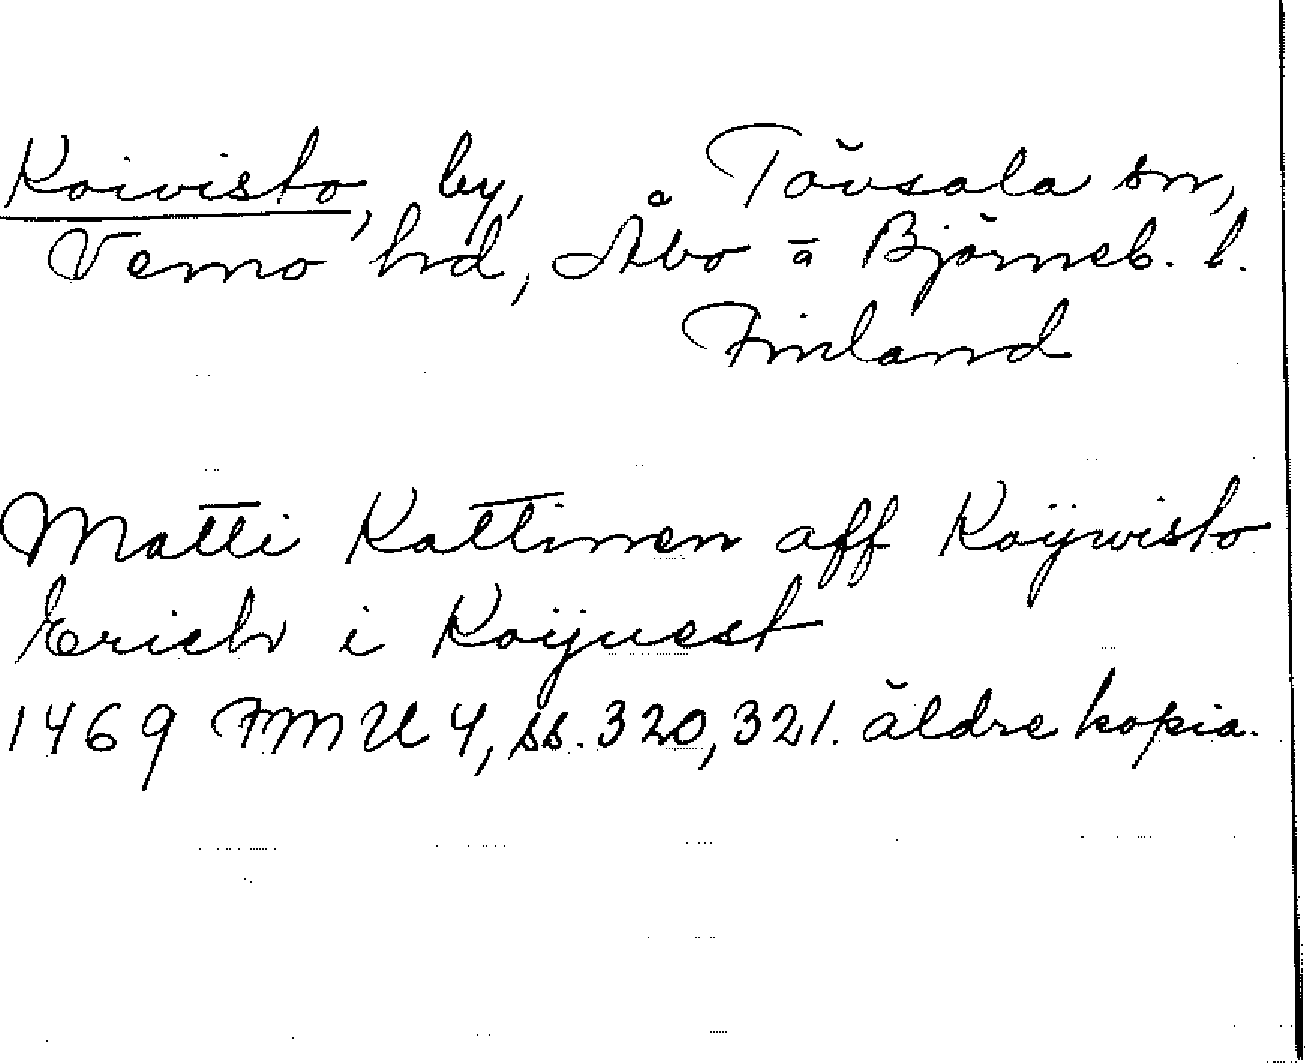 Koivisto, by, Tövsala sn,
Vemo hd, Åbo ā Björneb. l.
Finland
Matti Kattinen aff Koÿwisto
Erich i Koijuest
1469 FMU 4, ss. 320, 321. äldre kopia.